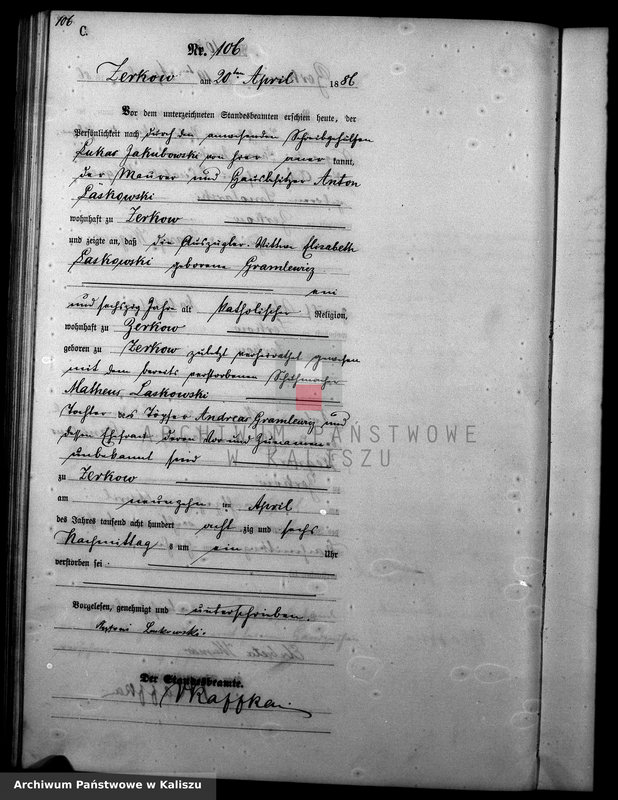 106
C.
Nr. 106
Zerkow am 20ten April 1886
Vor dem unterzeichneten Standesbeamten erschien heute, der
Persönlichkeit nach durch den anwesenden Schreibgehülfen
Lukas Jakubowski von hier anerkannt,
der Maurer und Hausbesitzer Anton
Laskowski
wohnhaft zu Zerkow
und zeigte an, daß die Auszügler-Wittwe Elisabeth
Laskowski geborene Gramlewicz
ein
und sechszig Jahr alt katholischer Religion,
wohnhaft zu Zerkow
geboren zu Zerkow zuletzt verheirathet gewesen
mit dem bereits verstorbenen Schuhmacher
Matheus Laskowski
Tochter des Töpfer Andreas Gramlewicz und
dessen Ehefrau deren Vor und Zunamen
unbekannt sind
zu Zerkow
am neunzehn ten April
des Jahres tausend acht hundert achtzig und sechs
Nachmittags um ein Uhr
verstorben sei.
Vorgelesen, genehmigt und unterschrieben.
Antoni Laskowski.
Der Standesbeamte.
Kaffka.
ARCHIWUM PAŃSTWOWE
W KALISZU
Archiwum Państwowe w Kaliszu